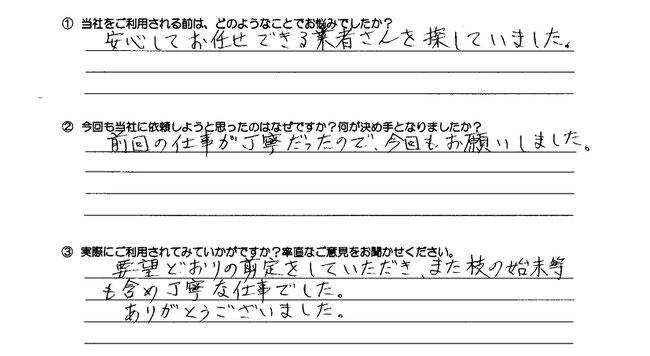 ① 当社をご利用される前は、どのようなことでお悩みでしたか？
安心してお任せできる業者さんを探していました。
② 今回も当社に依頼しようと思ったのはなぜですか？何が決め手となりましたか？
前回の仕事が丁寧だったので、今回もお願いしました。
③ 実際にご利用されてみていかがですか？率直なご意見をお聞かせください。
要望どおりの剪定をしていただき、また枝の始末等
も含め丁寧な仕事でした。
ありがとうございました。